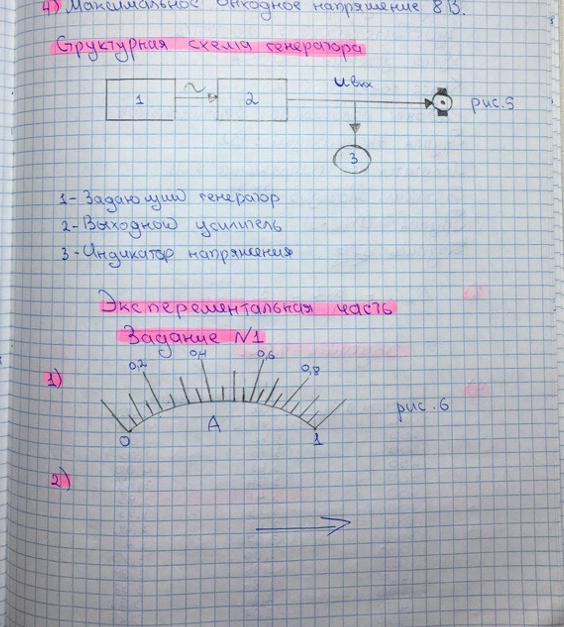 4) Максимальное выходное напряжение 8 В.
Структурная схема генератора
Uвых
1 ~ 2 рис.5
3
1-Задающий генератор
2-Выходной усилитель
3-Индикатор напряжения
Эксперементальная часть
Задание №1
0,2 0,4 0,6 0,8
1)
0 A 1 рис.6
2)